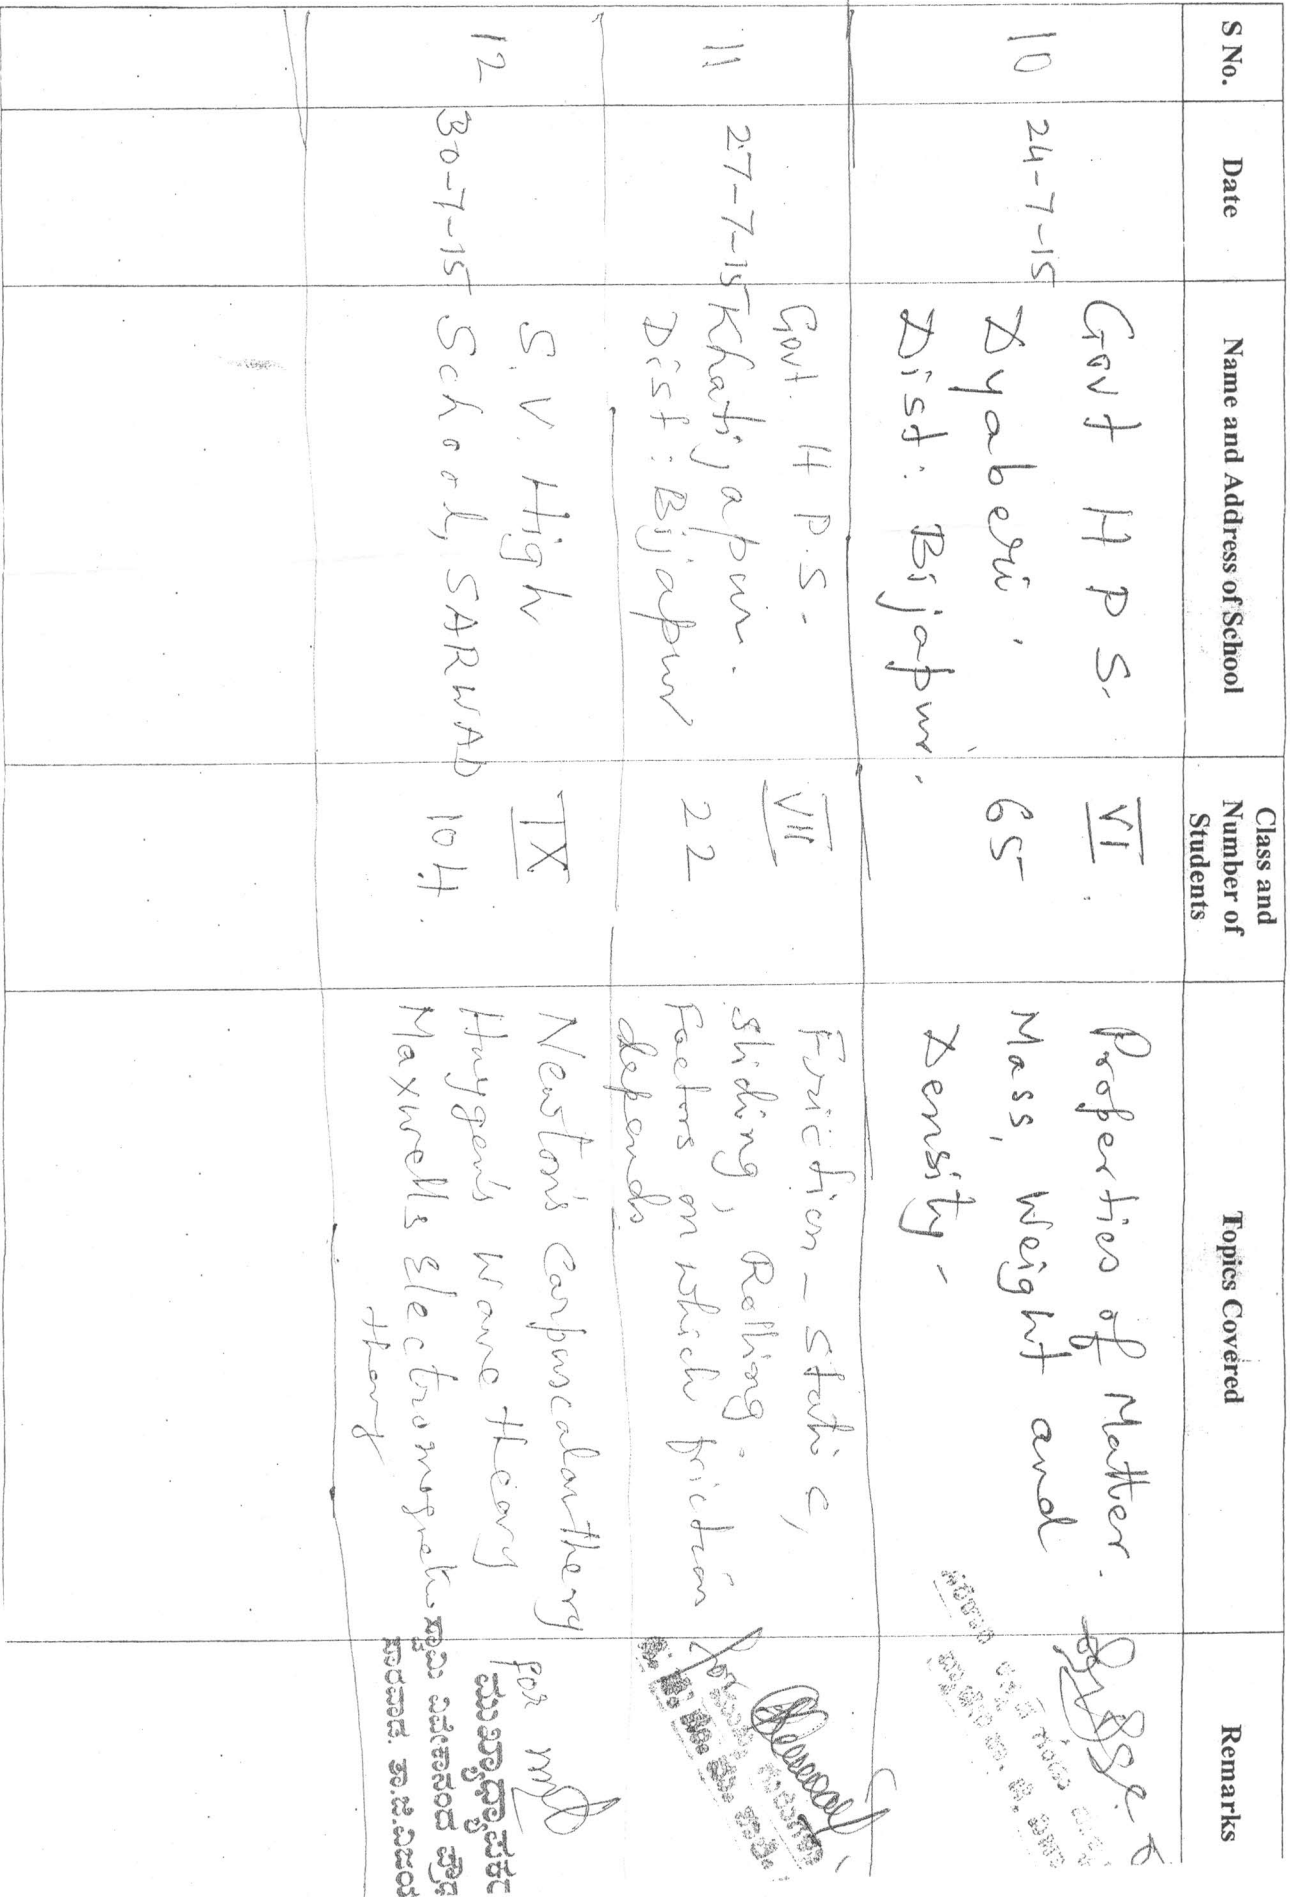 S No.
Date
Name and Address of School
Class and
Number of
Students
Topics Covered
Remarks
10
24-7-15
Govt H P S.
Dyaberi.
Dist. Bijapur.
VI.
65
Properties of Matter.
Mass, Weight and
Density.
11
27-7-15
Govt. H P.S.
Khatijapur.
Dist: Bijapur
VII
22
Friction - Static,
Sliding, Rolling.
Factors on which friction
depends.
for
12
30-7-15
S.V. High
School, SARWAD
IX
104.
Newton's Carpuscalar theory
Huygen's Wave theory
Maxwells Electromagnetic
theory
for
ಮುಖ್ಯಾಧ್ಯಾಪಕರ
ಸ್ವಾಮಿ ವಿವೇಕಾನಂದ ಪ್ರೌಢ
ಸಾರವಾಡ. ತಾ.ಜಿ.ವಿಜಯ